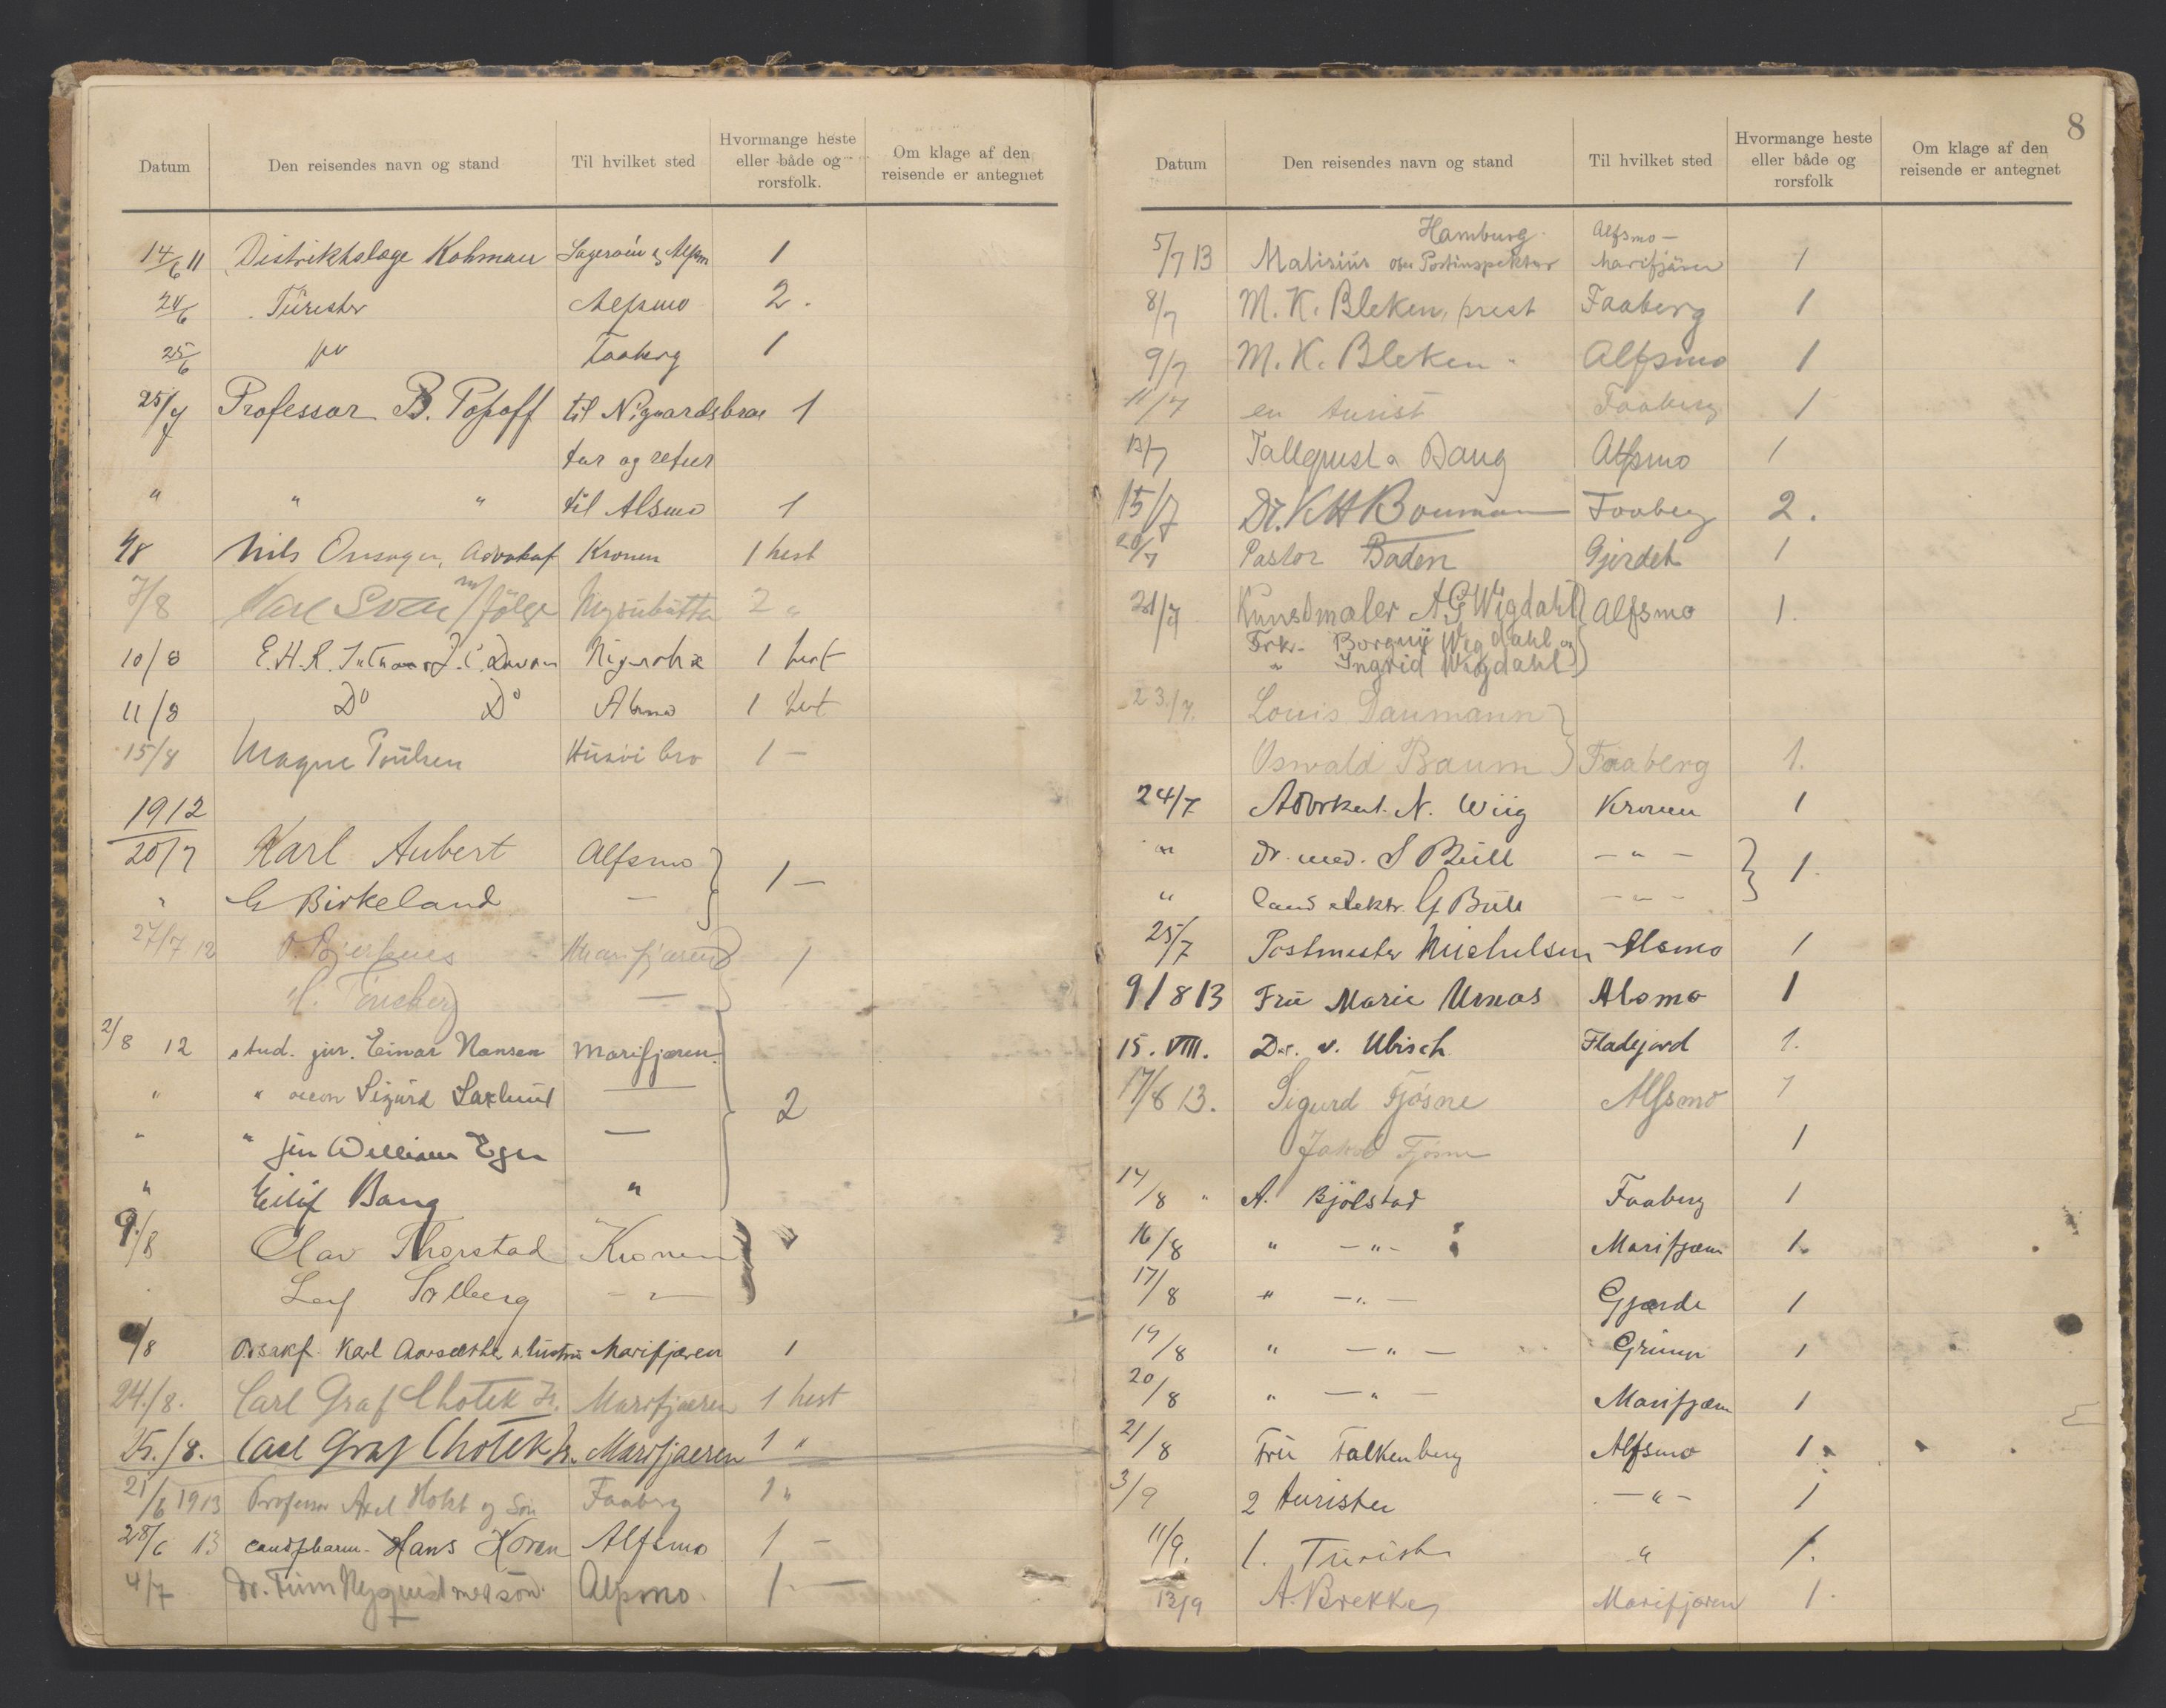 Datum Den reisendes navn og stand Til hvilket sted Hvormange heste eller både og rorsfolk. Om klage af den reisende er antegnet
14/6 11 Distriktslæge Kohman 1
24/6 Türister Alfsmo 2.
25/6 Faaberg 1
25/7 Professor B. Popoff til Nigaardsbræ 1
tur og retur
" " " til Alsmo 1
4/8 Nils Onsager, Advokat Kronen 1 hest
7/8 m/ følge 2 "
10/8 E.H.R. 1 hest
11/8 Do Do 1 hest
15/8 Magne Poülsen bro 1 —
1912
20/7 Karl Aubert Alfsmo 1 —
" Birkeland —
27/7 12 Marifjæren 1
H. Tønsberg —
2/8 12 stud. jur. Einar Nansen Marifjæren 2
" " oecon Sigürd Saxlund —
" " jür William Eger —
" Eilif Bang "
9/8 Olav Thorstad Kronen
Leif Solberg — " —
/8 Karl Marifjæren 1
24./8. Carl Graf Chotek Jr. Marifjæren 1 hest
25./8. Carl Graf Chotek Jr. Marifjaeren 1 "
21/6 1913 Professor Axel Holst og Søn Faaberg 1 "
28/6 13 cand pharm. Hans Koren Alfsmo 1 —
4/7 Dr. Finn Nyquist med søn. Alfsmo. 1. —
8
Datum Den reisendes navn og stand Til hvilket sted Hvormange heste eller både og rorsfolk Om klage af den reisende er antegnet
Hamburg. Alfsmo —
5/7 13 Malisiüs Ober Postinspektor Marifjären 1
8/7 M. K. Bleken, prest Faaberg 1
9/7 M. K. Bleken " Alfsmo 1
11/7 en turist Faaberg 1
13/7 Tallqvist & Alfsmo 1
15/7 Dr. K H Bouman Faaberg 2.
20/7 Pastor Baden Gjerdet 1
21/7 Kunstmaler A G Wigdahl Alfsmo 1.
Frk. Borgny Wigdahl og
" Ingrid Wigdahl
23./7. Louis Daumann
Oswald Baum Faaberg 1.
24/7 Advokat. N. Wiig Kronen 1
" Dr. med. S Büll — " — 1.
" Cand elektr. G Büll — " —
25/7 Postmester Michelsen Alsmo 1
9/8 13 Frü Marie Urnæs Alsmo 1
15. VIII. Dr. v. Ubisch Fladejord 1.
17/8 13. Sigurd Fjøsne Alfsmo 1
Jakob Fjøsne 1
14/8 " A. Bjölstad Faaberg 1
16/8 " — " — Marifjæren 1.
17/8 " — " — Gjærde 1
19/8 " — " — 1
20/8 " — " — Marifjæren 1
21/8 Frü Falkenberg Alfsmo 1
3/9 2 turister — " — 1
11/9. 1. Türist " 1.
13/9 A. Brekke Marifjæren 1.